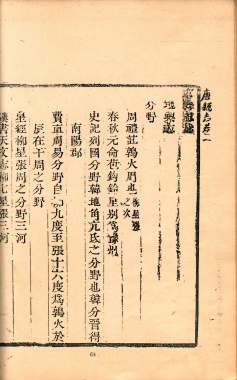 唐縣志卷一
輿地志
分野
周禮註鶉火周也 柳星張之次
春秋元命苞鉤鈐星别為豫州
史記列國分野韓地角亢氐之分野也韓分晉得
南陽郡
費直周易分野自柳九度至張十六度為鶉火於
辰在午周之分野
星經柳星張周之分野三河
漢書天文志柳七星張三河
68